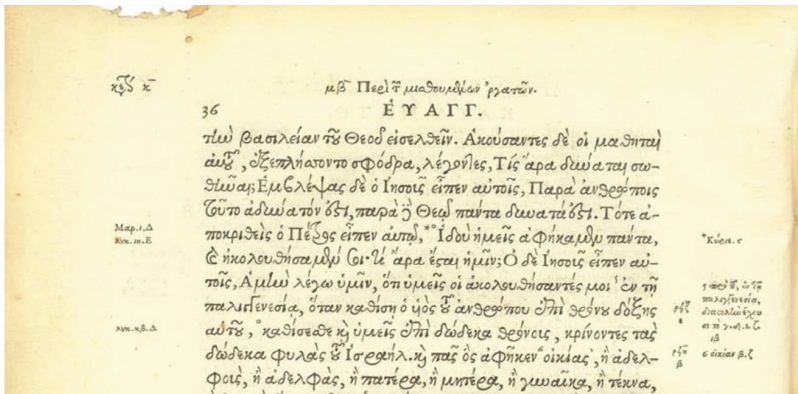 κεφ κ
μβ Περὶ τ μισθουμένων ἐργατῶν.
36 ΕΥΑΓΓ.
τὴν βασιλείαν τοῦ Θεοῦ εἰσελθεῖν. Ακούσαντες δὲ οἱ μαθηταὶ
αὐτοῦ, ἐξεπλήσσοντο σφόδρα, λέγοντες, Τίς ἄρα δύναται σω-
θῆναι; Εμβλέψας δὲ ὁ Ιησοῦς εἶπεν αὐτοῖς, Παρὰ ἀνθρώποις
τοῦτο ἀδύνατόν ἐστι, παρὰ δὲ Θεῷ πάντα δυνατά ἐστι. Τότε ἀ-
Μαρ. ι. Δ
ποκριθεὶς ὁ Πέτρος εἶπεν αὐτῷ, Ιδοὺ ἡμεῖς ἀφήκαμεν πάντα,
Λυκ. ιη. Ε
καὶ ἠκολουθήσαμέν σοι· τί ἄρα ἔσται ἡμῖν; Ο δὲ Ιησοῦς εἶπεν αὐ-
τοῖς, Αμὴν λέγω ὑμῖν, ὅτι ὑμεῖς οἱ ἀκολουθήσαντές μοι ἐν τῇ
παλιγγενεσίᾳ, ὅταν καθίσῃ ὁ υἱὸς τοῦ ἀνθρώπου ἐπὶ θρόνου δόξης
Λυκ. κβ. Δ
αὐτοῦ, καθίσεσθε καὶ ὑμεῖς ἐπὶ δώδεκα θρόνοις, κρίνοντες τὰς
δώδεκα φυλὰς τοῦ Ισραήλ. καὶ πᾶς ὃς ἀφῆκεν οἰκίας, ἢ ἀδελ-
6 οἰκίαν β. ζ
φοὺς, ἢ ἀδελφὰς, ἢ πατέρα, ἢ μητέρα, ἢ γυναῖκα, ἢ τέκνα,